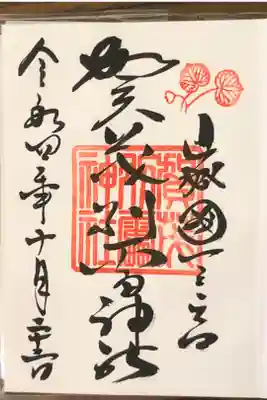 山城國一之宮
賀茂別雷神社
賀茂別雷神社
令和四年十月